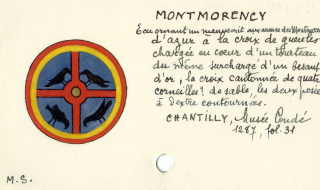 MONTMORENCY
Ecu ornant un manuscrit aux armes des Montmorency
d'azur à la croix de gueules
chargée en coeur d'un tourteau
du même surchargé d'un besant
d'or, la croix cantonnée de quatre
corneilles? de sable, les deux posées
à dextre contournées.
CHANTILLY, Musée Condé
1287, fol. 31
M.S.